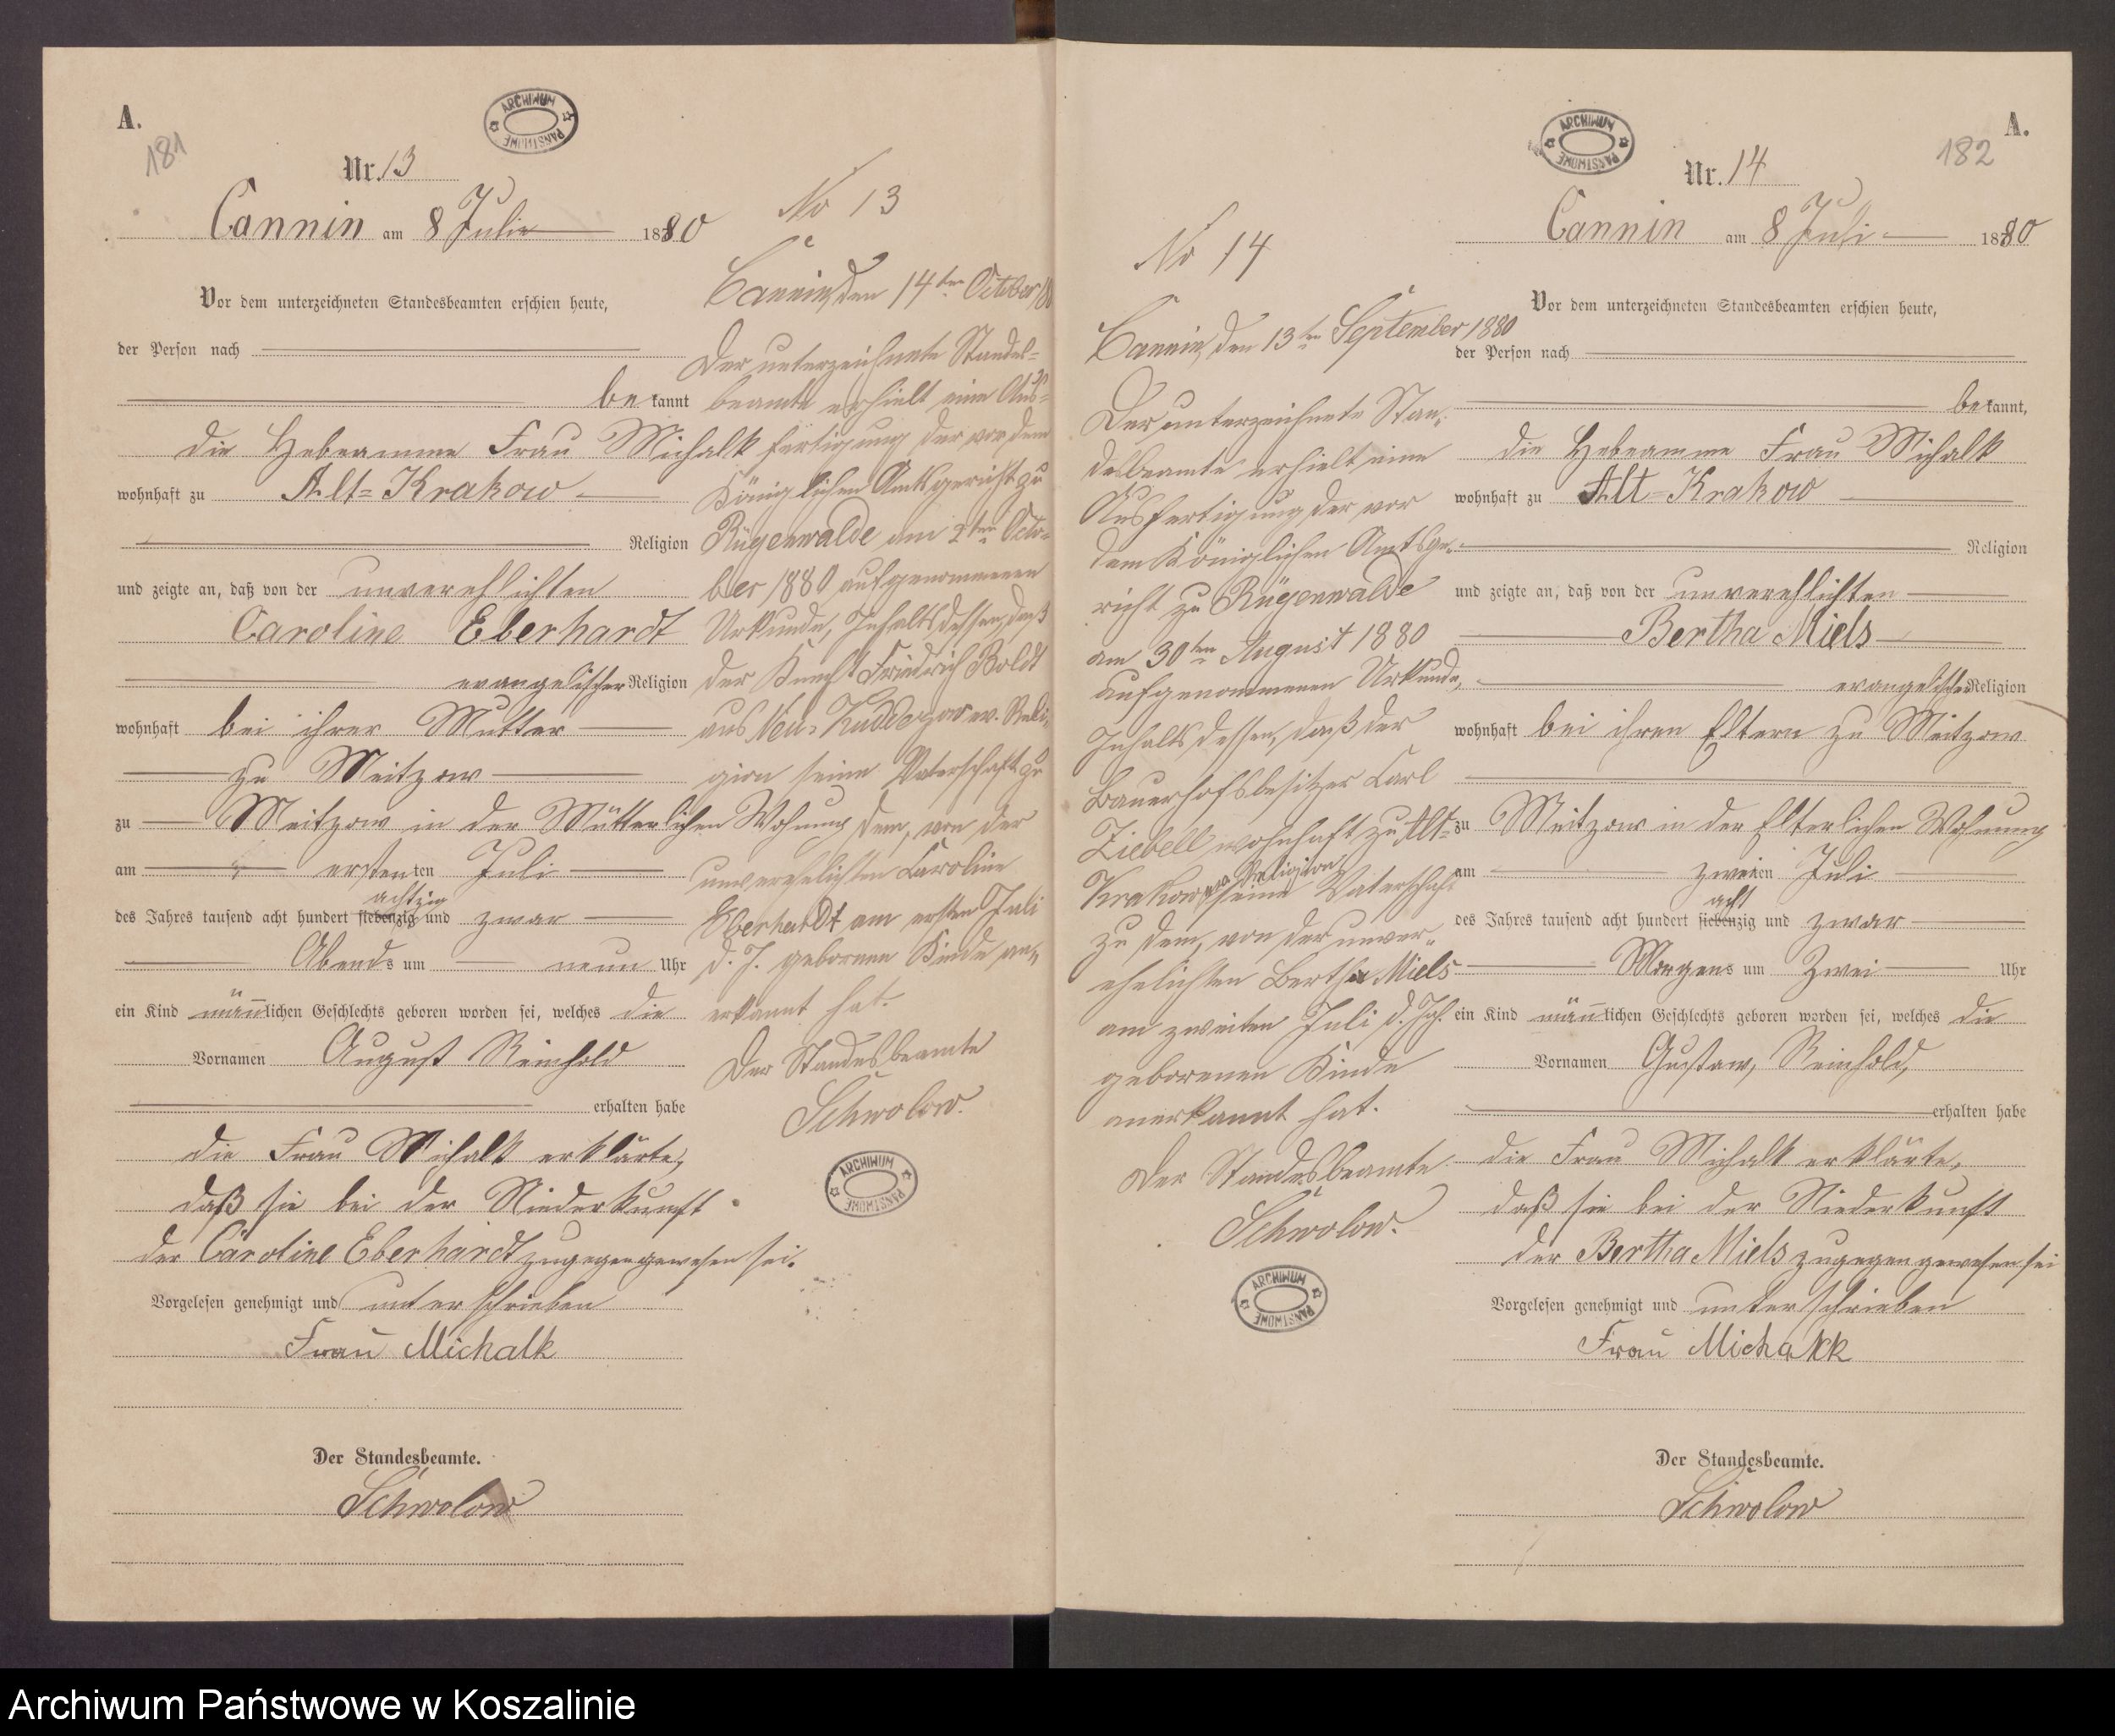 A.
181
ARCHIWUM PAŃSTWOWE
Nr. 13
Cannin am 8 Juli 1880
Vor dem unterzeichneten Standesbeamten erschien heute,
der Person nach
bekannt
die Hebeamme Frau Michalk
wohnhaft zu Alt-Krakow
Religion
und zeigte an, daß von der unverehlichten
Caroline Eberhardt
evangelischer Religion
wohnhaft bei ihrer Mutter
zu Meitzow
zu Meitzow in der Mütterlichen Wohnung
am ersten ten Juli
achtzig
des Jahres tausend acht hundert siebenzig und zwar
Abends um neun Uhr
ein Kind männlichen Geschlechts geboren worden sei, welches die
Vornamen August Reinhold
erhalten habe
die Frau Michalk erklärte,
daß sie bei der Niederkunft
der Caroline Eberhardt zugegen gewesen sei.
Vorgelesen genehmigt und unterschrieben
Frau Michalk
Der Standesbeamte.
Schwolow
No 13
Cannin, den 14ten October 180
Der unterzeichnete Standes-
beamte erhielt eine Aus-
fertigung der vor dem
Königlichen Amtsgericht zu
Rügenwalde am 2ten Octo-
ber 1880 aufgenommenen
Urkunde, Inhalts dessen, daß
der Knecht Friedrich Boldt
aus Neu-Kuddezow ev. Reli-
gion seine Vaterschaft zu
dem, von der
unverehelichten Caroline
Eberhardt am ersten Juli
d. J. gebornen Kinde an-
erkannt hat.
Der Standesbeamte
Schwolow.
ARCHIWUM PAŃSTWOWE
No 14
Cannin, den 13ten September 1880
Der unterzeichnete Stan-
desbeamte erhielt eine
Ausfertigung der vor
dem Königlichen Amtsge-
richt zu Rügenwalde
am 30ten August 1880
aufgenommenen Urkunde,
Inhalts dessen, daß der
Bauerhofsbesitzer Carl
Ziebell wohnhaft zu Alt-
Krakow eva Religion seine Vaterschaft
zu dem, von der unver-
ehelichten Bertha Miels
am zweiten Juli d. Jah.
geborenen Kinde
anerkannt hat.
Der Standesbeamte
Schwolow.
ARCHIWUM PAŃSTWOWE
ARCHIWUM PAŃSTWOWE
A.
182
Nr. 14
Cannin am 8 Juli 1880
Vor dem unterzeichneten Standesbeamten erschien heute,
der Person nach
bekannt,
die Hebeamme Frau Michalk
wohnhaft zu Alt-Krakow
Religion
und zeigte an, daß von der unverehlichten
Bertha Miels
evangelischer Religion
wohnhaft bei ihren Eltern zu Meitzow
zu Meitzow in der Elterlichen Wohnung
am zweiten Juli
acht
des Jahres tausend acht hundert siebenzig und zwar
Morgens um Zwei Uhr
ein Kind männlichen Geschlechts geboren worden sei, welches die
Vornamen Gustaw, Reinhold,
erhalten habe
die Frau Michalk erklärte,
daß sie bei der Niederkunft
der Bertha Miels zugegen gewesen sei
Vorgelesen genehmigt und unterschrieben
Frau Michalk
Der Standesbeamte.
Schwolow
Archiwum Państwowe w Koszalinie